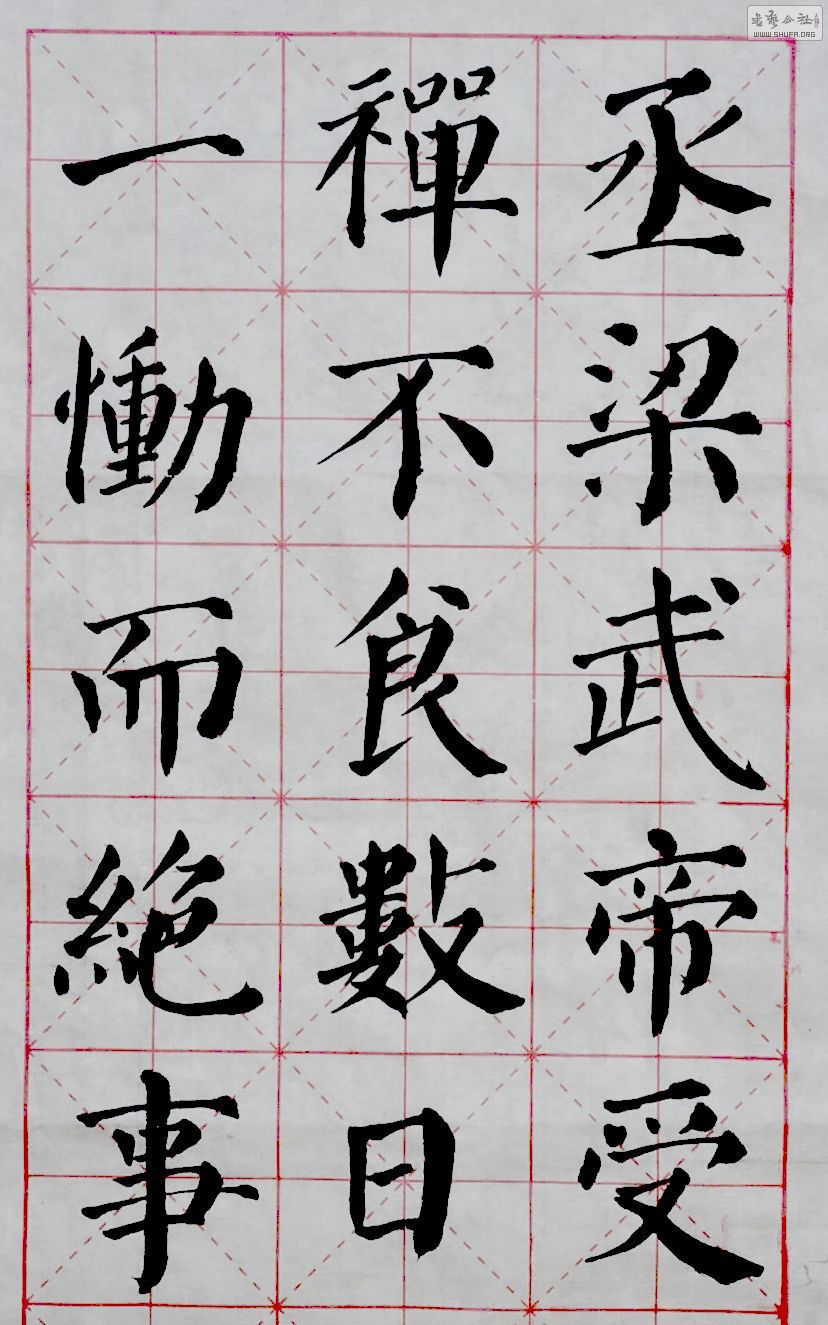 丞梁武帝受
禪不食數日
一慟而絶事
書藝公社
WWW.SHUFA.ORG